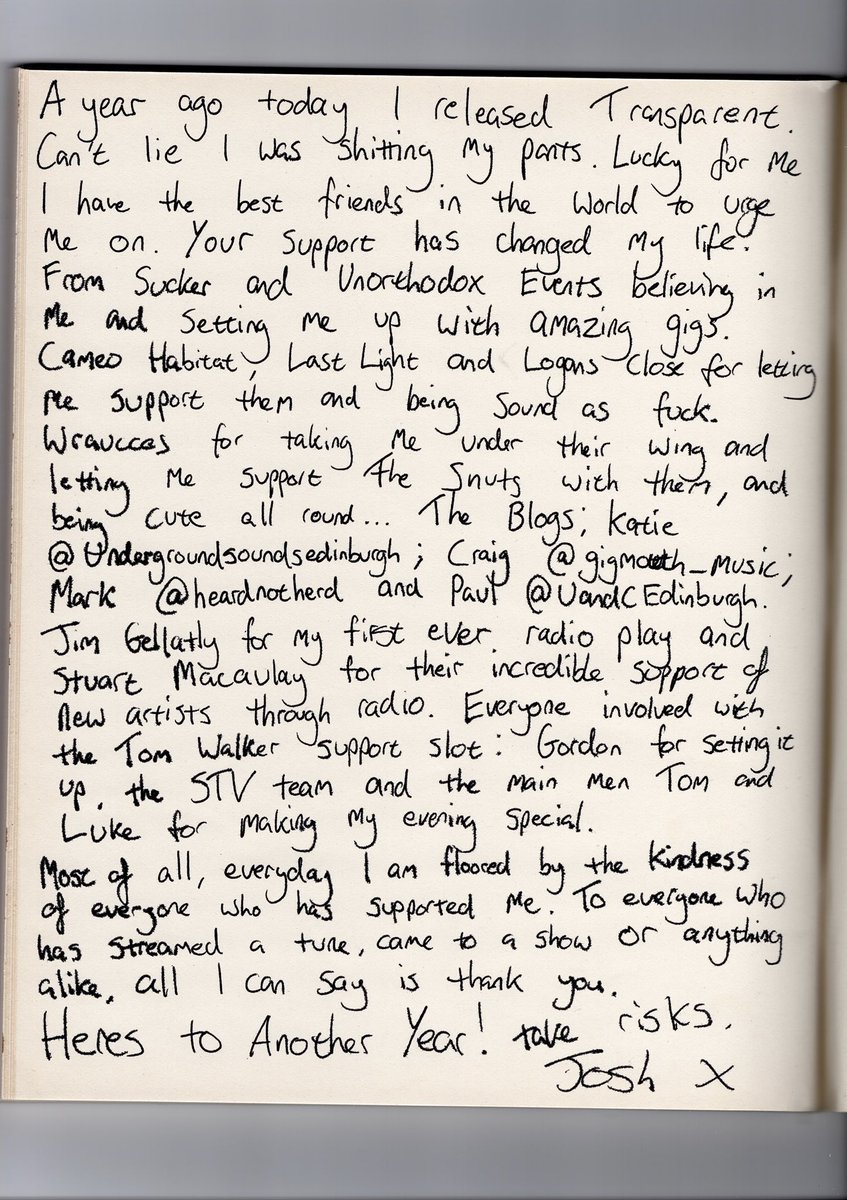 A year ago today I released Transparent.
Can't lie I was shitting my pants. Lucky for me
I have the best friends in the world to urge
me on. Your support has changed my life.
From Sucker and Unorthodox Events believing in
me and setting me up with amazing gigs.
Cameo Habitat, Last Light and Logans Close for letting
me support them and being sound as fuck.
Wrauccas for taking me under their wing and
letting me support The Snuts with them, and
being cute all round... The Blogs; Katie
@Undergroundsoundsedinburgh; Craig @gigmouth_music;
Mark @heardnotherd and Paul @UandCEdinburgh.
Jim Gellatly for my first ever radio play and
Stuart Macaulay for their incredible support of
new artists through radio. Everyone involved with
the Tom Walker support slot: Gordon for setting it
up, the STV team and the main men Tom and
Luke for making my evening special.
Most of all, everyday I am floored by the kindness
of everyone who has supported me. To everyone who
has streamed a tune, came to a show or anything
alike, all I can say is thank you.
Heres to Another Year! take risks.
Josh x